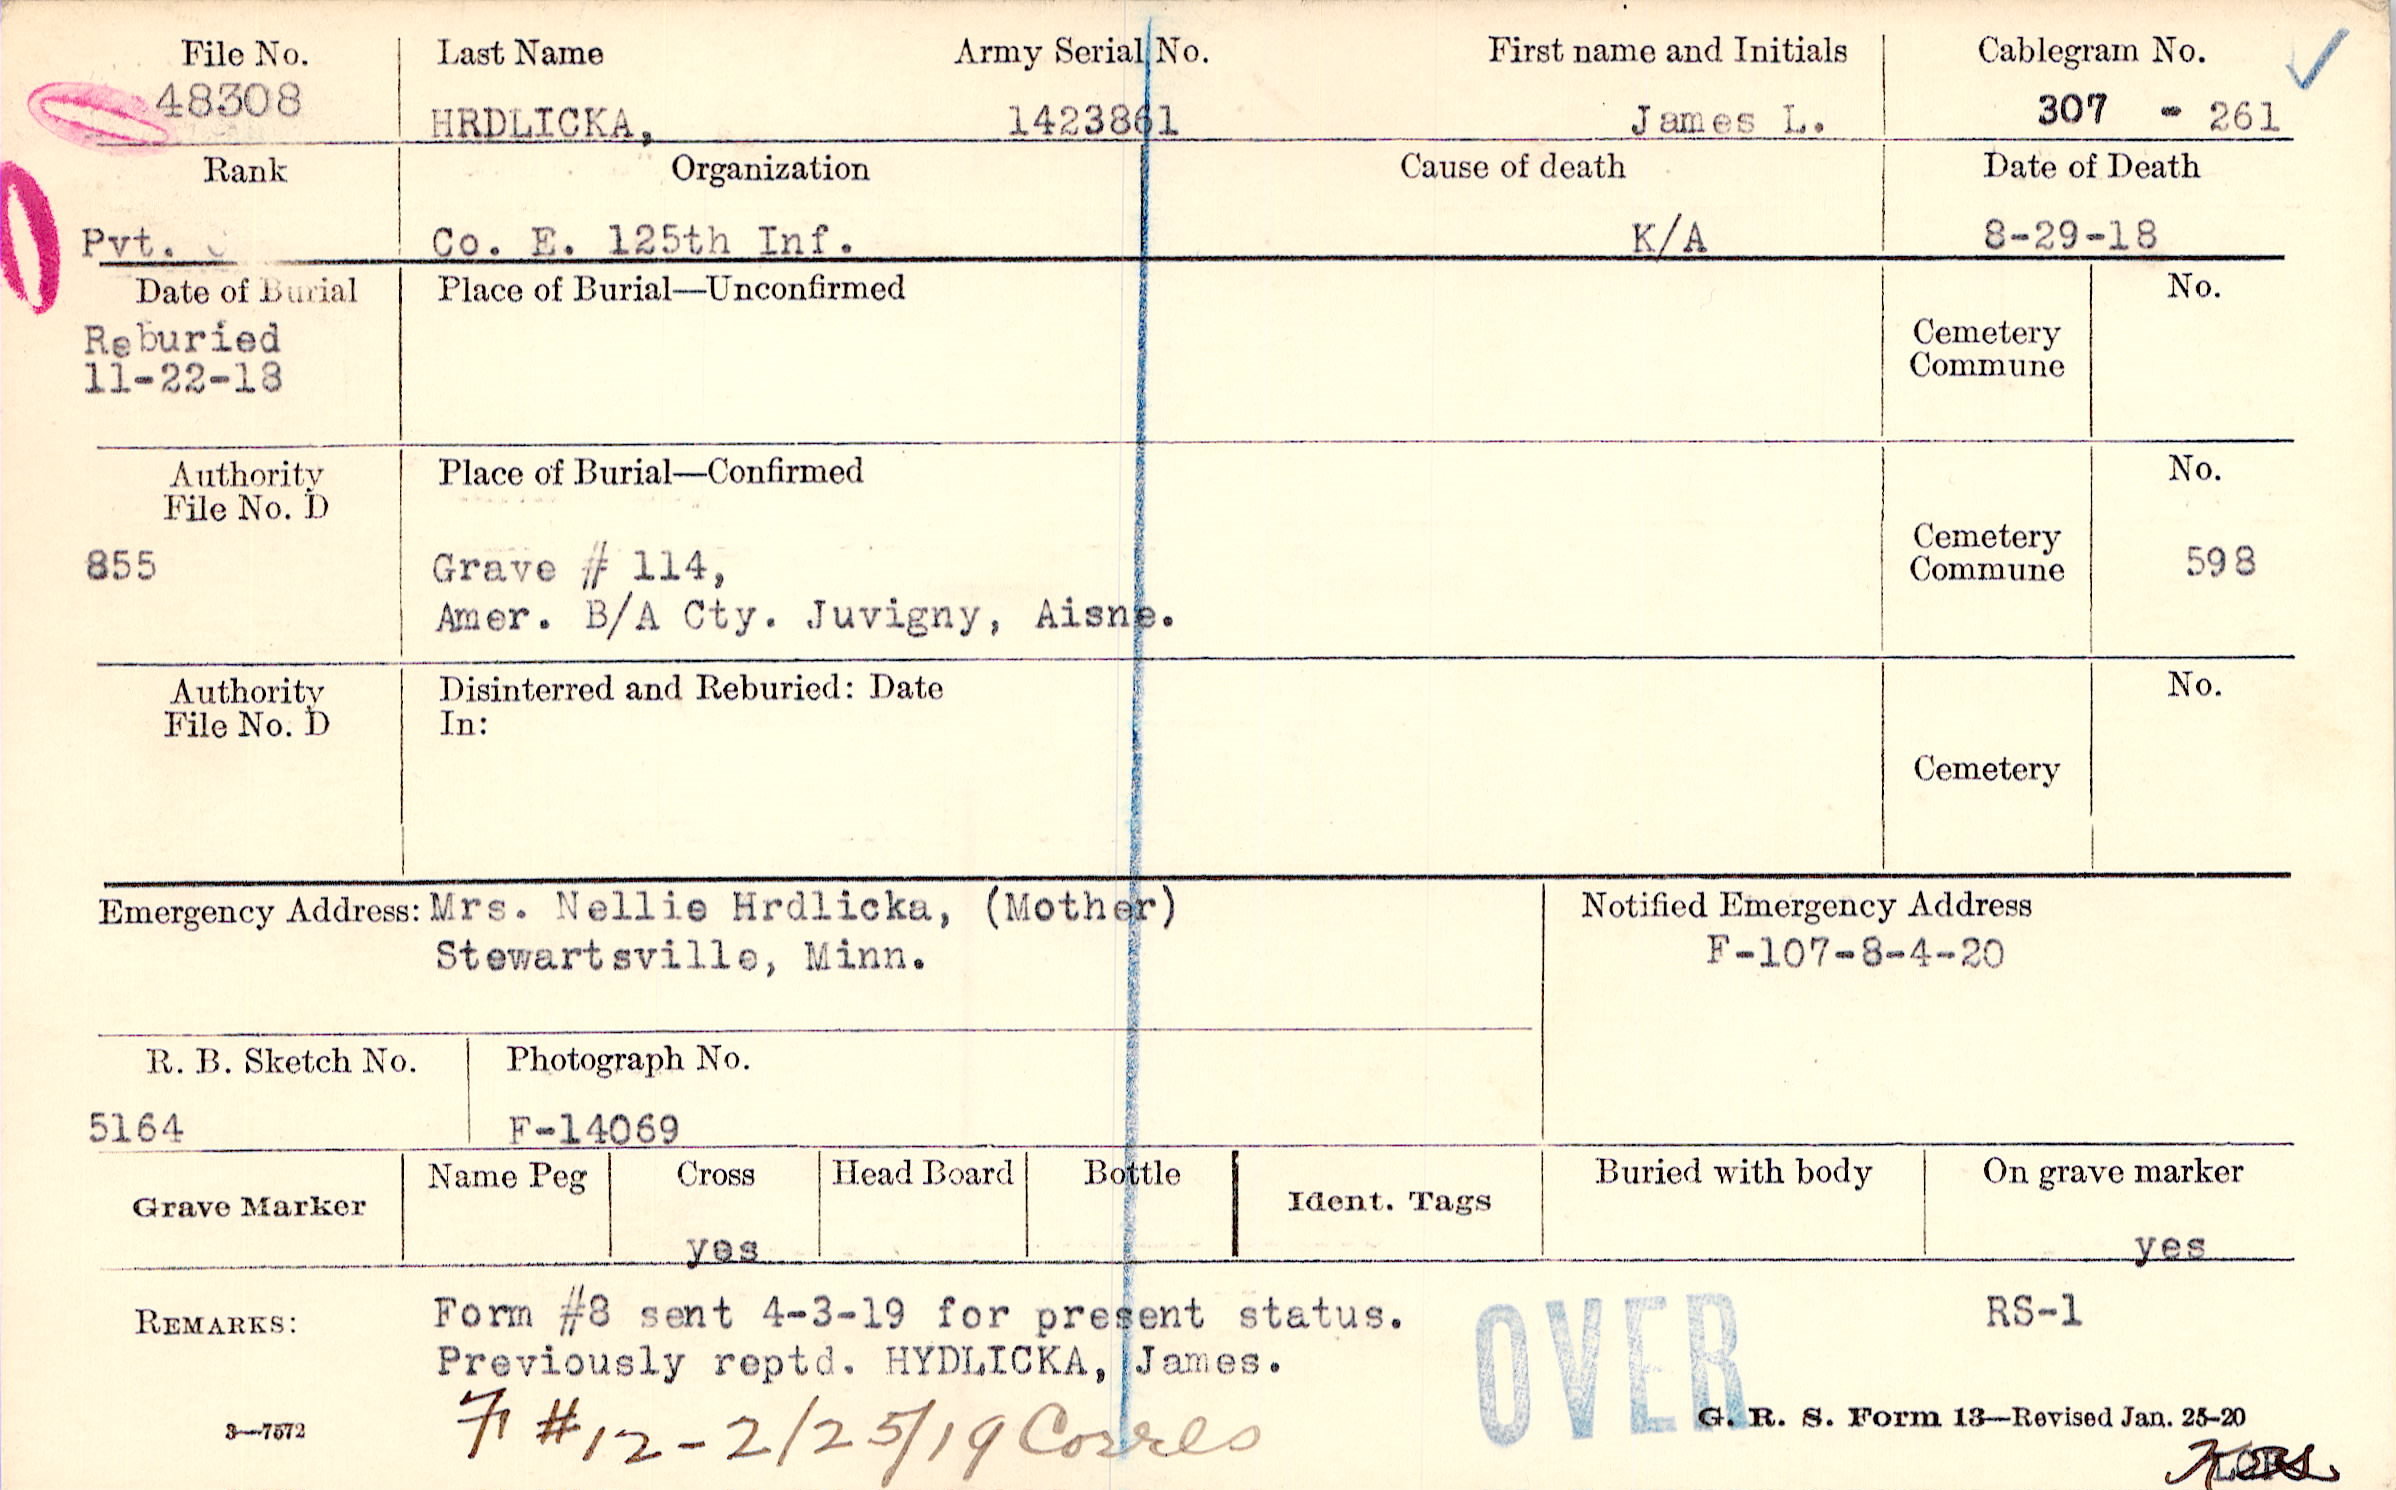 File No.
Last Name
Army Serial No.
First name and Initials
Cablegram No.
48308
HRDLICKA,
1423861
James L.
307 - 261
Rank
Organization
Cause of death
Date of Death
Pvt.
Co. E. 125th Inf.
K/A
8-29-18
Date of Burial
Place of Burial—Unconfirmed
No.
Reburied
11-22-18
Cemetery
Commune
Authority
File No. D
Place of Burial—Confirmed
No.
855
Grave # 114,
Amer. B/A Cty. Juvigny, Aisne.
Cemetery
Commune
598
Authority
File No. D
Disinterred and Reburied: Date
In:
No.
Cemetery
Emergency Address: Mrs. Nellie Hrdlicka, (Mother)
Stewartsville, Minn.
Notified Emergency Address
F-107-8-4-20
R. B. Sketch No.
Photograph No.
5164
F-14069
Grave Marker
Name Peg
Cross
Head Board
Bottle
Ident. Tags
Buried with body
On grave marker
yes
yes
REMARKS:
Form #8 sent 4-3-19 for present status.
Previously reptd. HYDLICKA, James.
OVER
RS-1
#12-2/25/19 Corres
3—7572
G. R. S. Form 13—Revised Jan. 25-20